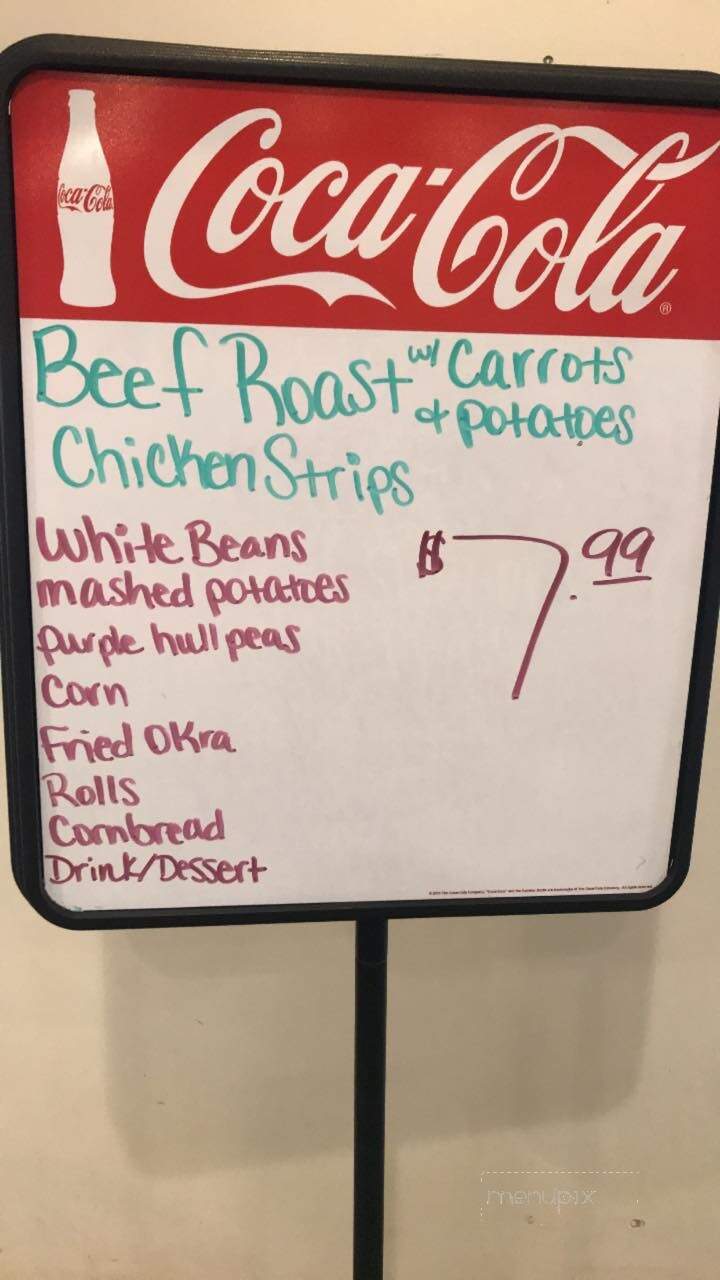 Coca-Cola
Coca-Cola®
Beef Roast w/ Carrots
& potatoes
Chicken Strips
White Beans
mashed potatoes
purple hull peas
Corn
Fried Okra
Rolls
Cornbread
Drink/Dessert
$7.99
menupix